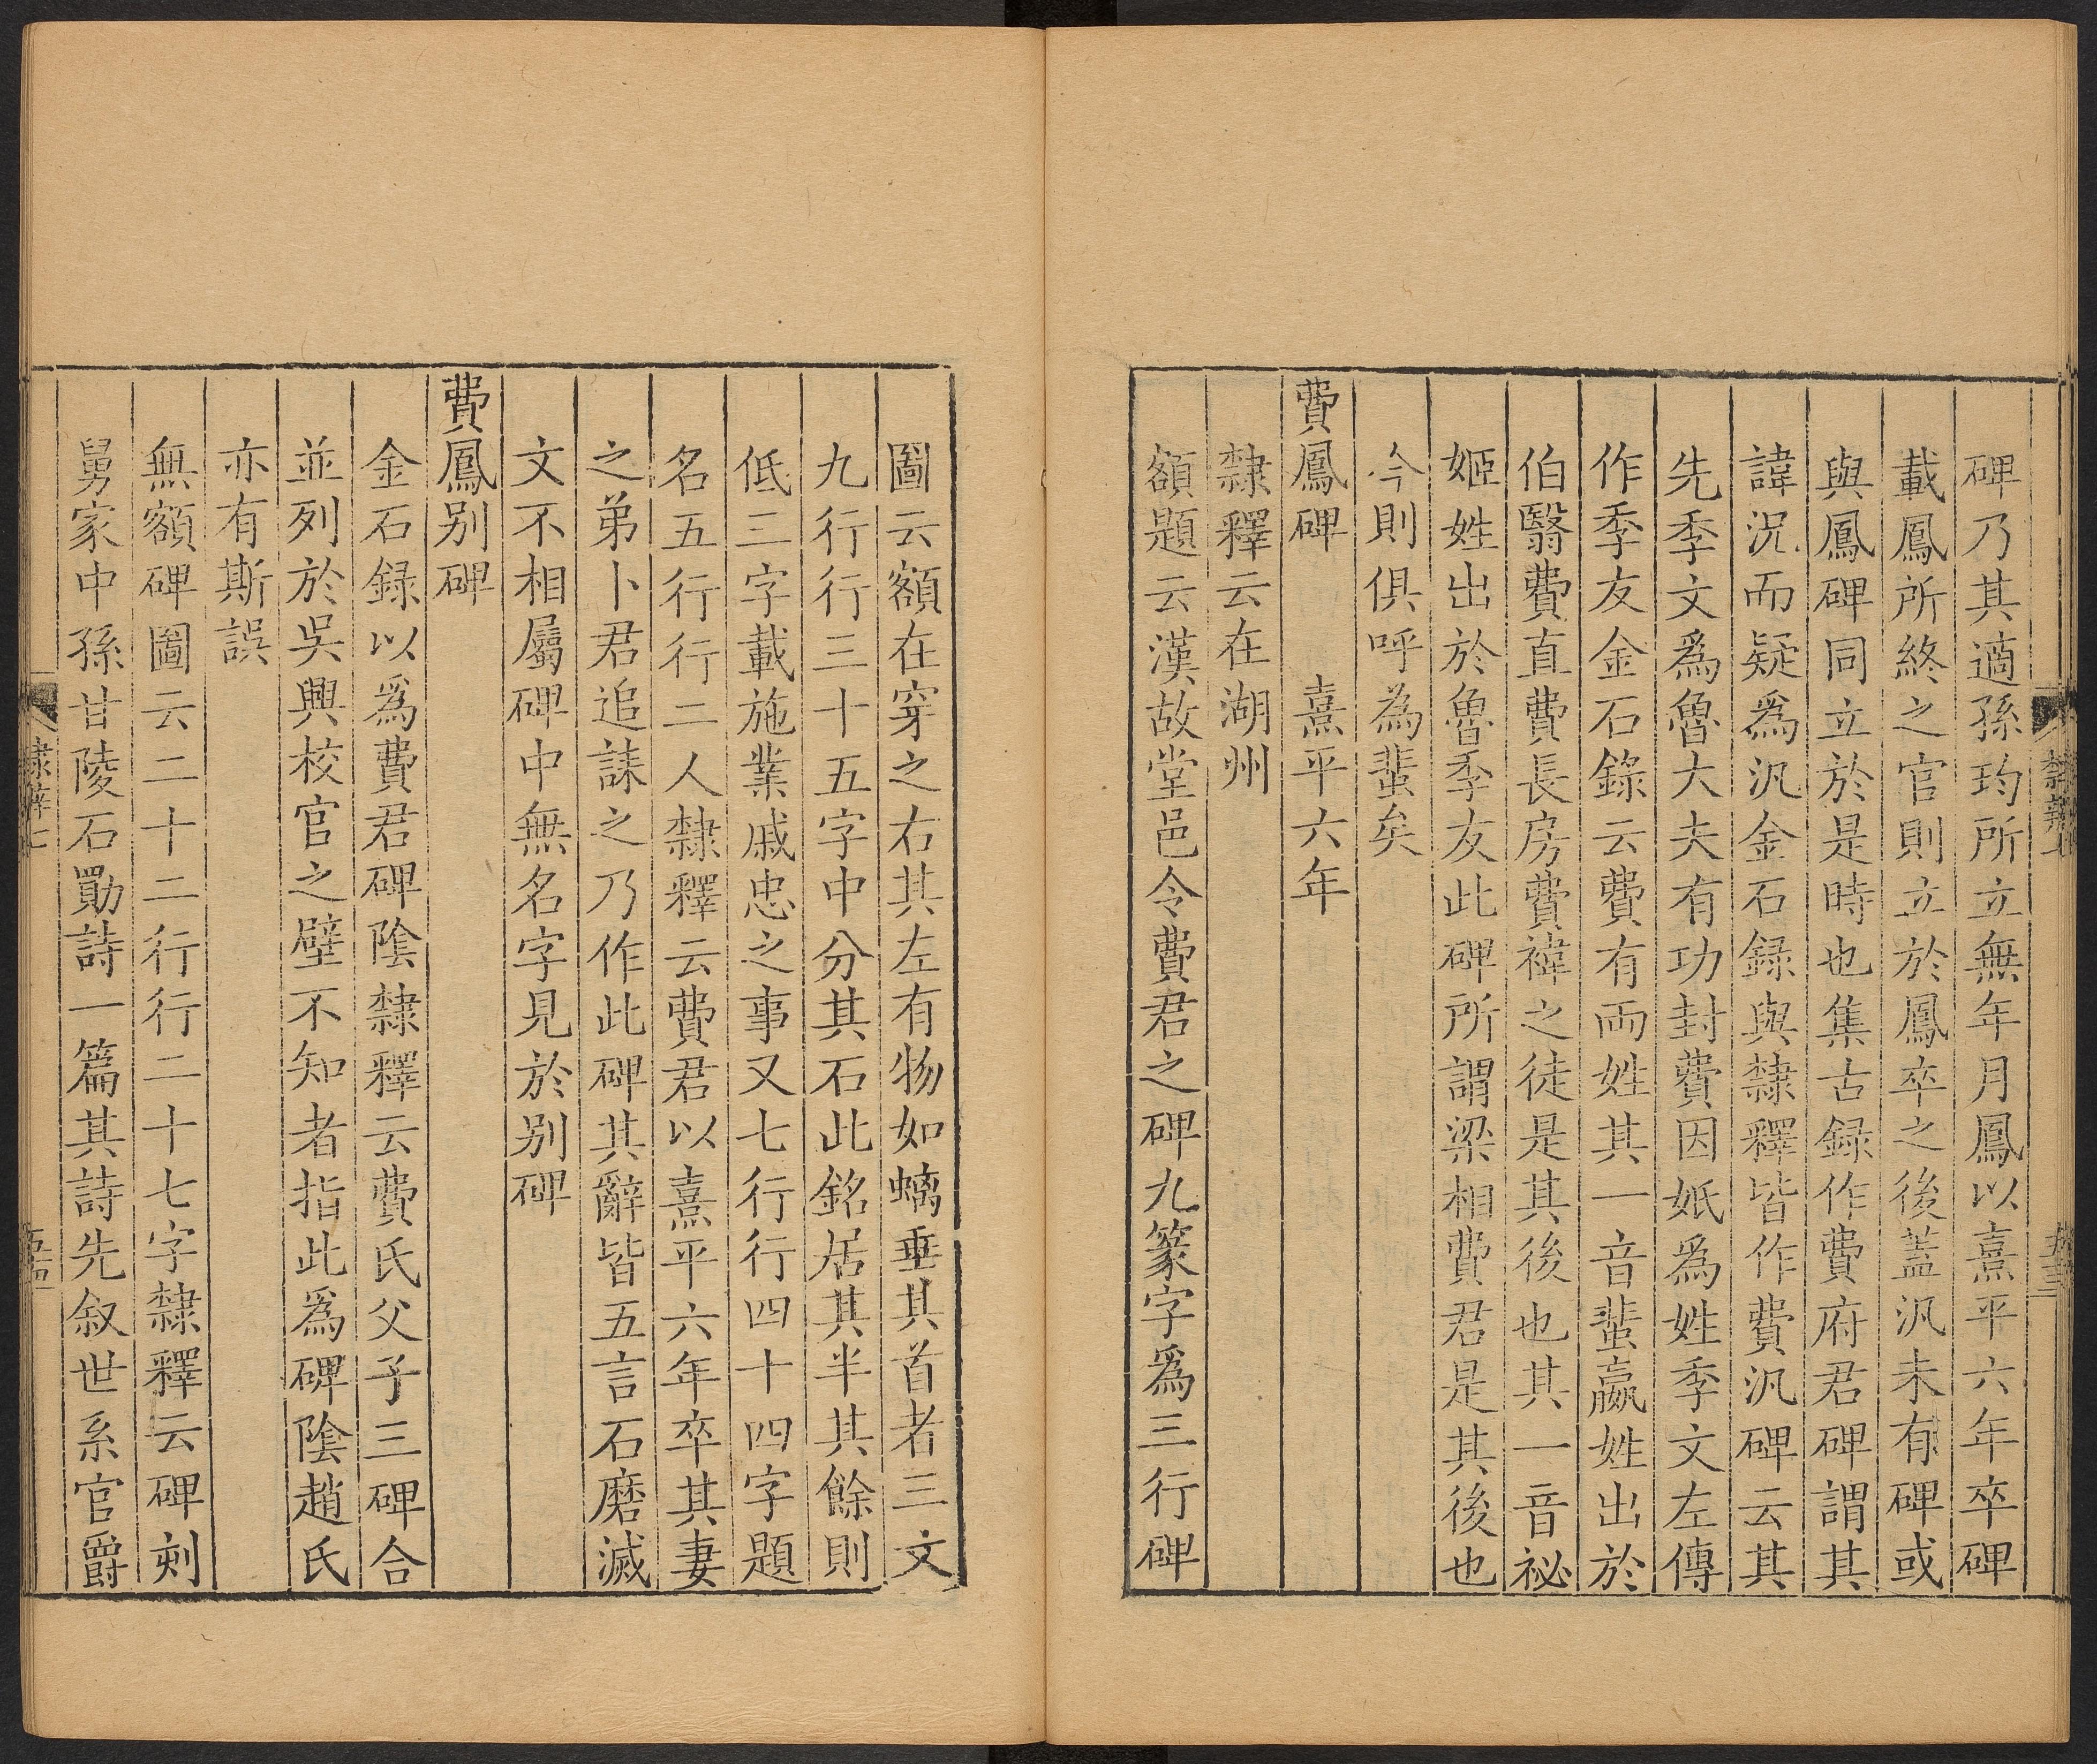 碑乃其適孫玓所立無年月鳳以熹平六年卒碑
載鳳所終之官則立於鳳卒之後蓋汎未有碑或
與鳳碑同立於是時也集古録作費府君碑謂其
諱況而疑爲汎金石録與隸釋皆作費汎碑云其
先季文爲魯大夫有功封費因㲻爲姓季文左傳
作季友金石錄云費有兩姓其一音蜚嬴姓出於
伯翳費直費長房費禕之徒是其後也其一音祕
姬姓出於魯季友此碑所謂梁相費君是其後也
今則俱呼為蜚矣
費鳳碑 熹平六年
隸釋云在湖州
額題云漢故堂邑令費君之碑九篆字爲三行碑
圖云額在穿之右其左有物如螭垂其首者三文
九行行三十五字中分其石此銘居其半其餘則
低三字載施業戚忠之事又七行行四十四字題
名五行行二人隸釋云費君以熹平六年卒其妻
之弟卜君追誄之乃作此碑其辭皆五言石磨滅
文不相屬碑中無名字見於别碑
費鳳别碑
金石録以爲費君碑陰隸釋云費氏父子三碑合
並列於吳興校官之壁不知者指此爲碑陰趙氏
亦有斯誤
無額碑圖云二十二行行二十七字隸釋云碑刻
舅家中孫甘陵石勛詩一篇其詩先叙世系官爵